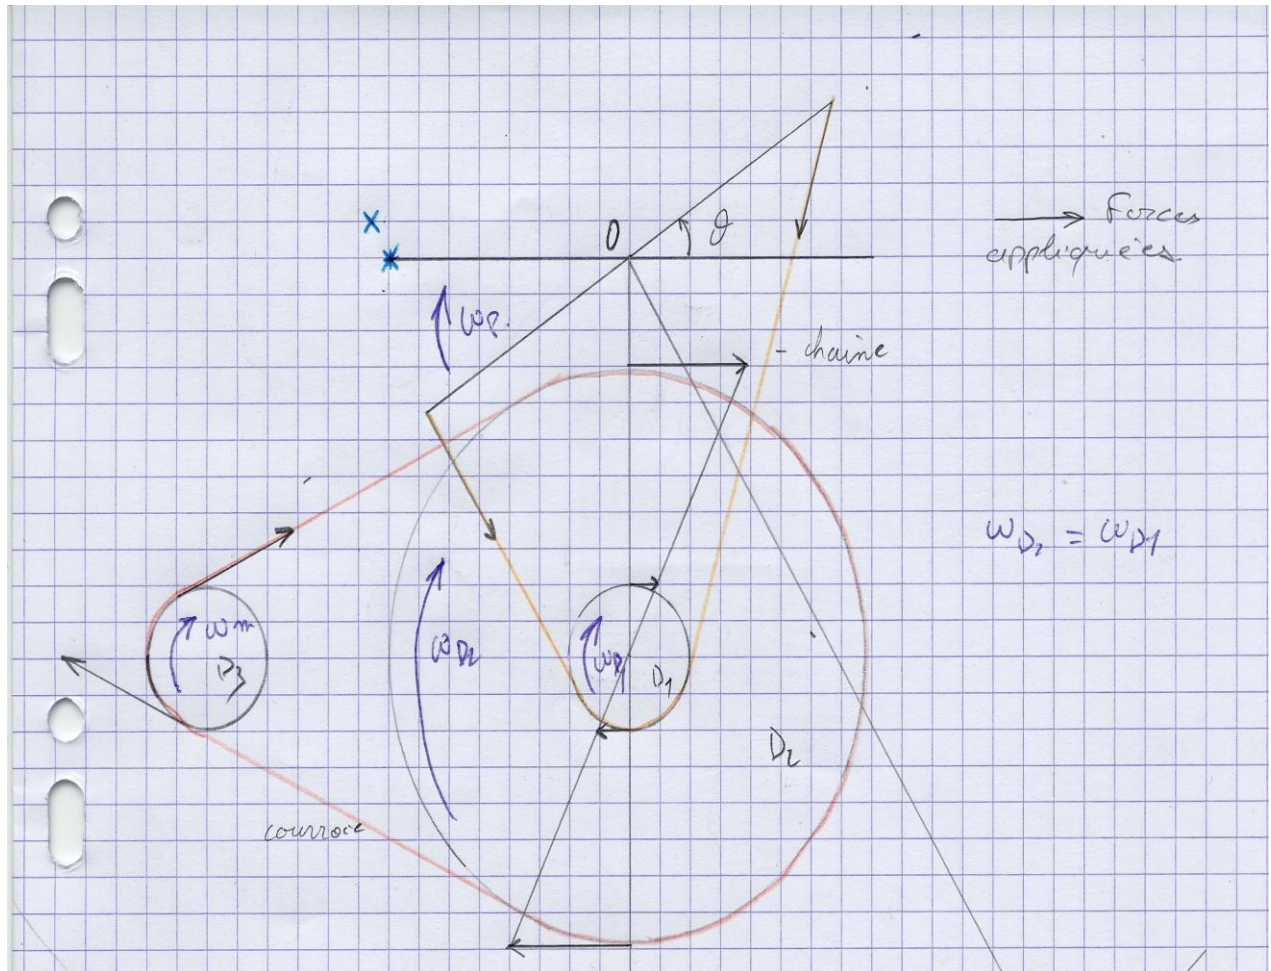 O
θ
→ Forces
appliquées
ωp.
- chaine
ωD₂ = ωD1
ωm
D3
ωD2
ωD1
D1
D2
courroie